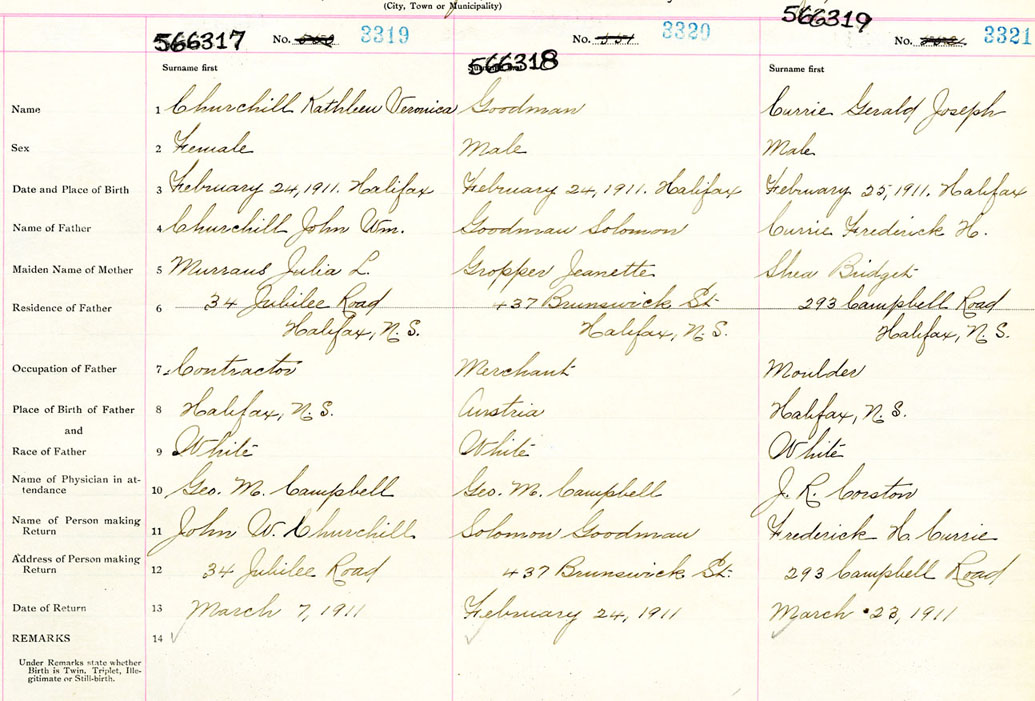 (City, Town or Municipality)
566317 No. 3319 566318 No. 551 3320 566319 No. 3321
Surname first Surname first Surname first
Name 1 Churchill Kathleen Veronica Goodman Currie Gerald Joseph
Sex 2 Female Male Male
Date and Place of Birth 3 February 24, 1911. Halifax February 24, 1911. Halifax February 25, 1911. Halifax
Name of Father 4 Churchill John Wm. Goodman Solomon Currie Frederick H.
Maiden Name of Mother 5 Julia L. Gropper Jeanette Shea Bridget
Residence of Father 6 34 Jubilee Road 437 Brunswick St. 293 Campbell Road
Halifax, N.S. Halifax, N.S. Halifax, N.S.
Occupation of Father 7 Contractor Merchant Moulder
Place of Birth of Father 8 Halifax, N.S. Austria Halifax, N.S.
and
Race of Father 9 White White White
Name of Physician in at-
tendance 10 Geo. M. Campbell Geo. M. Campbell J. R. Corston
Name of Person making
Return 11 John W. Churchill Solomon Goodman Frederick H. Currie
Address of Person making
Return 12 34 Jubilee Road 437 Brunswick St. 293 Campbell Road
Date of Return 13 March 7, 1911 February 24, 1911 March 23, 1911
REMARKS 14
Under Remarks state whether
Birth is Twin, Triplet, Ille-
gitimate or Still-birth.